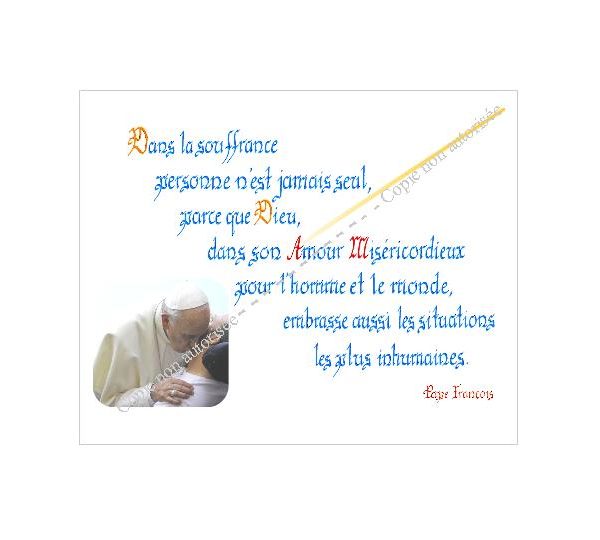 Dans la souffrance
personne n'est jamais seul,
parce que Dieu,
dans son Amour Miséricordieux
pour l'homme et le monde,
embrasse aussi les situations
les plus inhumaines.
Pape François
Copie non autorisée - - - - - - - - - - Copie non autorisée